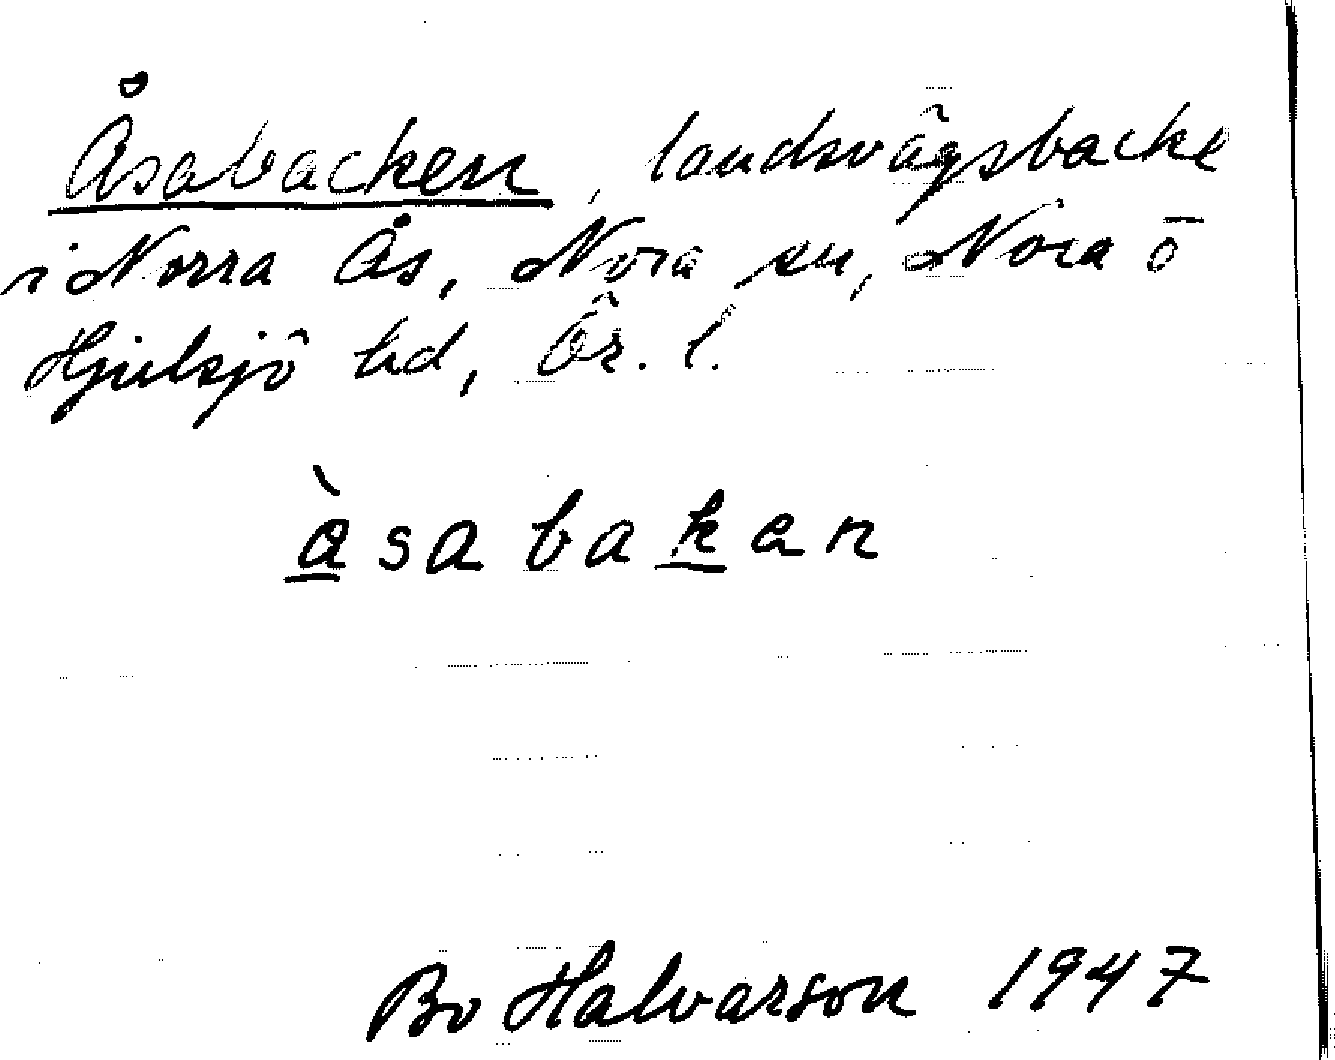 Åsabacken, landsvägsbacke
i Norra Ås, Nora sn, Nora o
Hjulsjö hd, Ör. l.
àsabakan
Bo Halvarson 1947